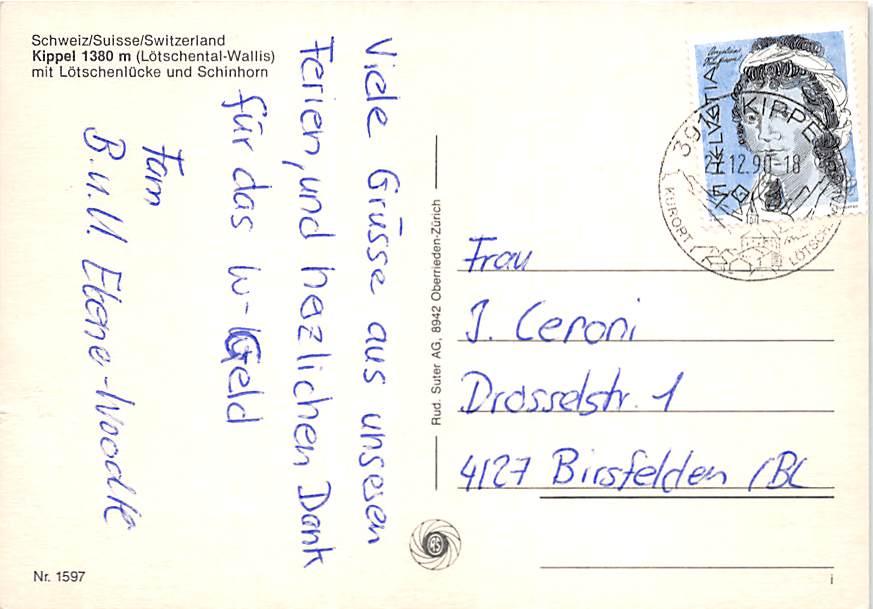 Schweiz/Suisse/Switzerland
Kippel 1380 m (Lötschental-Wallis)
mit Lötschenlücke und Schinhorn
Viele Grüsse aus unseren
Ferien, und hezlichen Dank
für das W-Geld
Fam
B. u. U. Ebene-Woodli
Nr. 1597
Rud. Suter AG, 8942 Oberrieden-Zürich
HELVETIA
KIPPEL
12.90-18
KURORT
Frau
J. Ceroni
Drosselstr. 1
4127 Birsfelden /BL
i